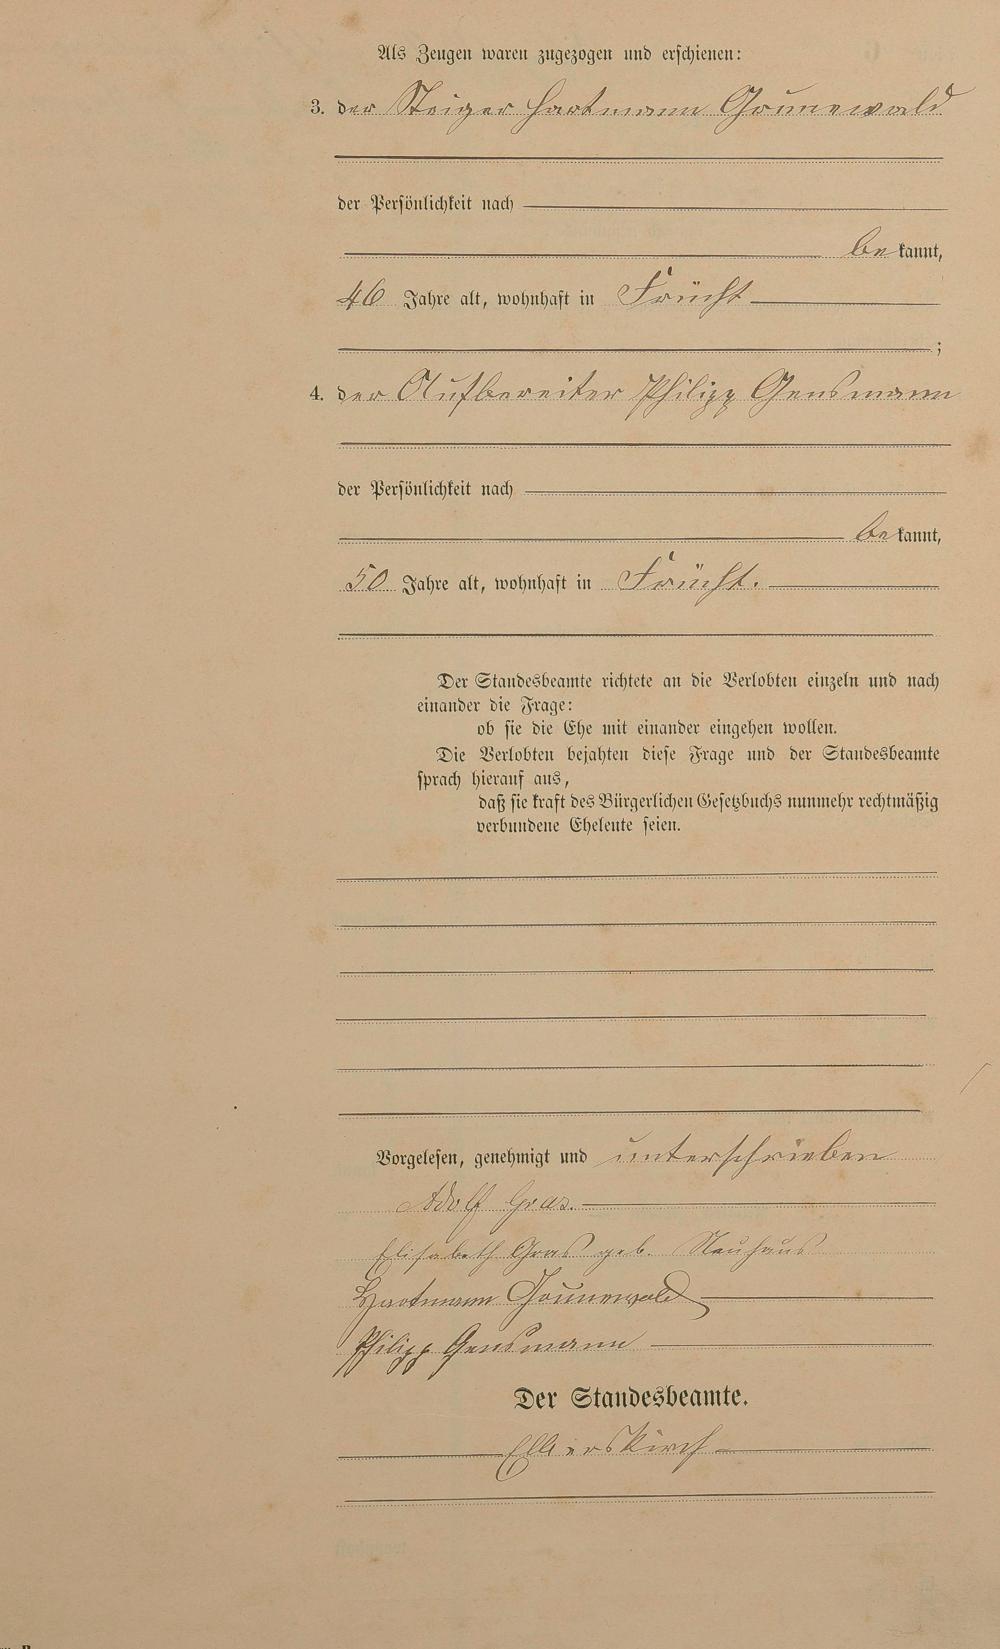 Als Zeugen waren zugezogen und erschienen:
3. der Steiger Hartmann Grunewald
der Persönlichkeit nach
bekannt,
46 Jahre alt, wohnhaft in Frücht
;
4. der Aufbereiter Philipp Gensmann
der Persönlichkeit nach
bekannt,
50 Jahre alt, wohnhaft in Frücht.
Der Standesbeamte richtete an die Verlobten einzeln und nach
einander die Frage:
ob sie die Ehe mit einander eingehen wollen.
Die Verlobten bejahten diese Frage und der Standesbeamte
sprach hierauf aus,
daß sie kraft des Bürgerlichen Gesetzbuchs nunmehr rechtmäßig
verbundene Eheleute seien.
Vorgelesen, genehmigt und unterschrieben
Adolf Gras.
Elisabeth Gras geb. Neuhaus
Hartmann Grunewald
Philipp Gensmann
Der Standesbeamte.